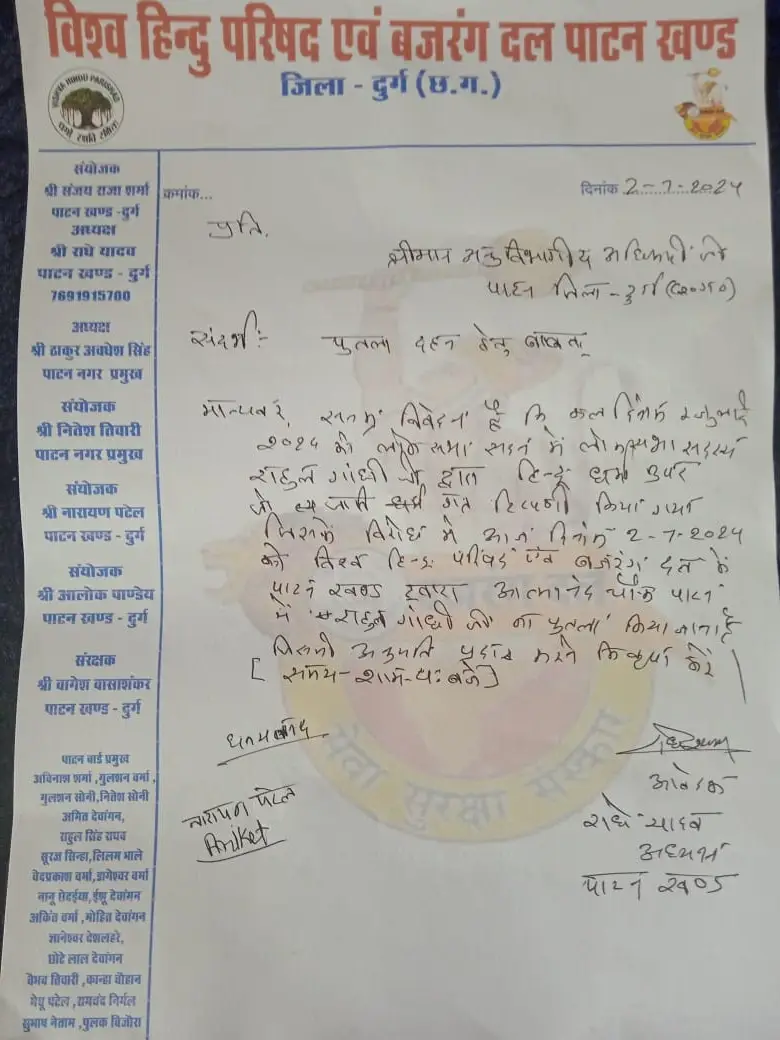 विश्व हिन्दु परिषद एवं बजरंग दल पाटन खण्ड
जिला - दुर्ग (छ.ग.)
VISHVA HINDU PARISHAD
धर्मो रक्षति रक्षितः
संयोजक
श्री संजय राजा शर्मा
पाटन खण्ड -दुर्ग
अध्यक्ष
श्री राधे यादव
पाटन खण्ड - दुर्ग
7691915700
अध्यक्ष
श्री ठाकुर अवधेश सिंह
पाटन नगर प्रमुख
संयोजक
श्री नितेश तिवारी
पाटन नगर प्रमुख
संयोजक
श्री नारायण पटेल
पाटन खण्ड - दुर्ग
संयोजक
श्री आलोक पाण्डेय
पाटन खण्ड - दुर्ग
संरक्षक
श्री वागेश वासाशंकर
पाटन खण्ड - दुर्ग
पाटन वार्ड प्रमुख
अविनाश शर्मा ,गुलशन वर्मा ,
गुलशन सोनी,नितेश सोनी
अमित देवांगन,
राहुल सिंह राघव
सूरज सिन्हा,लिलम भाले
वेदप्रकाश वर्मा,डागेश्वर वर्मा
नानू सेदईया,ईशू देवांगन
अंकित वर्मा ,मोहित देवांगन
ज्ञानेश्वर देशलहरे,
छोटे लाल देवांगन
वैभव तिवारी ,कान्हा चौहान
मेषू पटेल ,रामचंद निर्मल
सुभाष नेताम ,पुलक बिजौरा
क्रमांक...
दिनांक 2-7-2024
प्रति,
श्रीमान अनुविभागीय अधिकारी जी
पाटन जिला-दुर्ग (छ०ग०)
संदर्भ:- पुतला दहन हेतु बाबत्
मान्यवर, सनम्र विवेदन है कि कल दिनांक 1 जुलाई
2024 को लोकसभा सदन में लोकसभा सदस्य
राहुल गांधी जी द्वारा हिन्दू धर्म उपर
जो गत टिप्पणी किया गया
जिसके विरोध में आज दिनांक 2-7-2024
को विश्व हिन्दू परिषद एवं बजरंग दल के
पाटन खण्ड द्वारा आत्मानंद चौक पाटन
में राहुल गांधी जी का पुतला किया जाना है
जिसकी अनुमति प्रदान करने कि कृपा करें
[समय-शाम-4:बजे]
धन्यवाद
नारायण पटेल
Aniket
आवेदक
राधे यादव
अध्यक्ष
पाटन खण्ड
सेवा सुरक्षा संस्कार